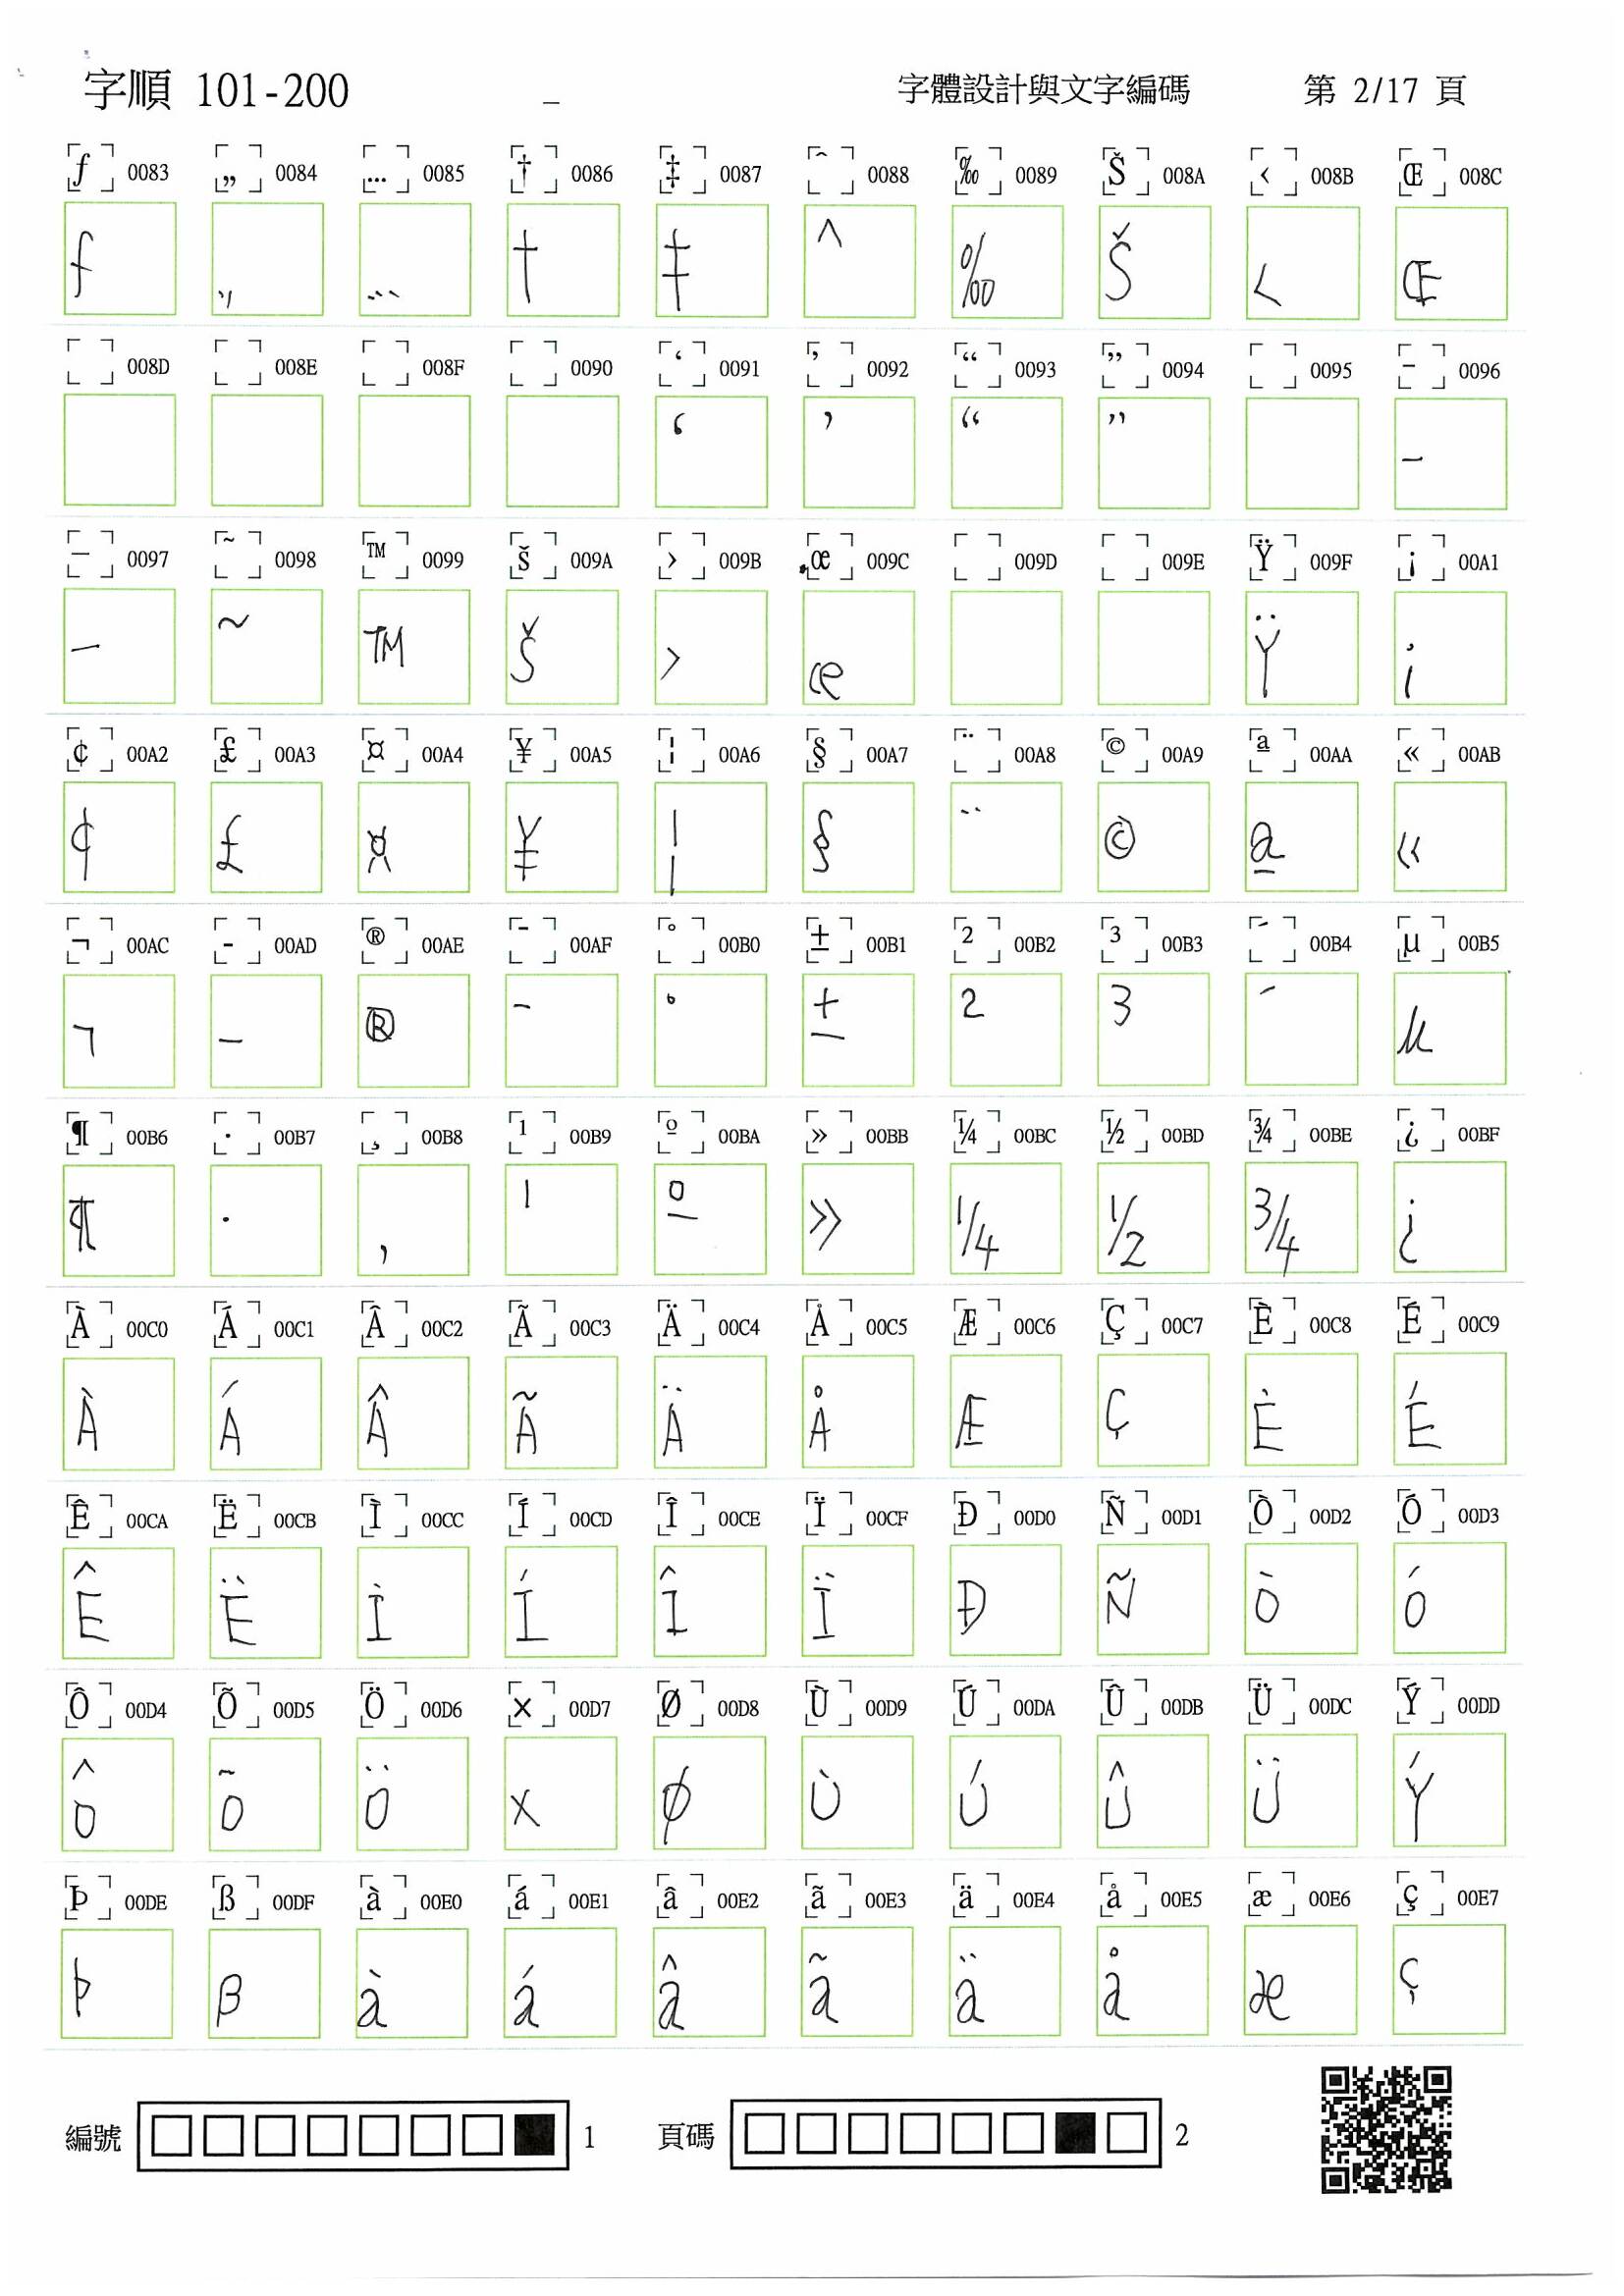 字順 101-200 _ 字體設計與文字編碼 第 2/17 頁
ƒ 0083 „ 0084 … 0085 † 0086 ‡ 0087 ˆ 0088 ‰ 0089 Š 008A ‹ 008B Œ 008C
ƒ „ … † ‡ ^ ‰ Š ‹ Œ
008D 008E 008F 0090 ‘ 0091 ’ 0092 “ 0093 ” 0094 0095 – 0096
‘ ’ “ ” –
— 0097 ˜ 0098 ™ 0099 š 009A › 009B œ 009C 009D 009E Ÿ 009F ¡ 00A1
— ~ ™ š › œ Ÿ ¡
¢ 00A2 £ 00A3 ¤ 00A4 ¥ 00A5 ¦ 00A6 § 00A7 ¨ 00A8 © 00A9 ª 00AA « 00AB
¢ £ ¤ ¥ ¦ § ¨ © ª «
¬ 00AC - 00AD ® 00AE ¯ 00AF ° 00B0 ± 00B1 ² 00B2 ³ 00B3 ´ 00B4 µ 00B5
¬ - ® ¯ ° ± ² ³ ´ µ
¶ 00B6 · 00B7 ¸ 00B8 ¹ 00B9 º 00BA » 00BB ¼ 00BC ½ 00BD ¾ 00BE ¿ 00BF
¶ · ¸ ¹ º » ¼ ½ ¾ ¿
À 00C0 Á 00C1 Â 00C2 Ã 00C3 Ä 00C4 Å 00C5 Æ 00C6 Ç 00C7 È 00C8 É 00C9
À Á Â Ã Ä Å Æ Ç È É
Ê 00CA Ë 00CB Ì 00CC Í 00CD Î 00CE Ï 00CF Ð 00D0 Ñ 00D1 Ò 00D2 Ó 00D3
Ê Ë Ì Í Î Ï Ð Ñ Ò Ó
Ô 00D4 Õ 00D5 Ö 00D6 × 00D7 Ø 00D8 Ù 00D9 Ú 00DA Û 00DB Ü 00DC Ý 00DD
Ô Õ Ö × Ø Ù Ú Û Ü Ý
Þ 00DE ß 00DF à 00E0 á 00E1 â 00E2 ã 00E3 ä 00E4 å 00E5 æ 00E6 ç 00E7
Þ ß à á â ã ä å æ ç
編號 1 頁碼 2